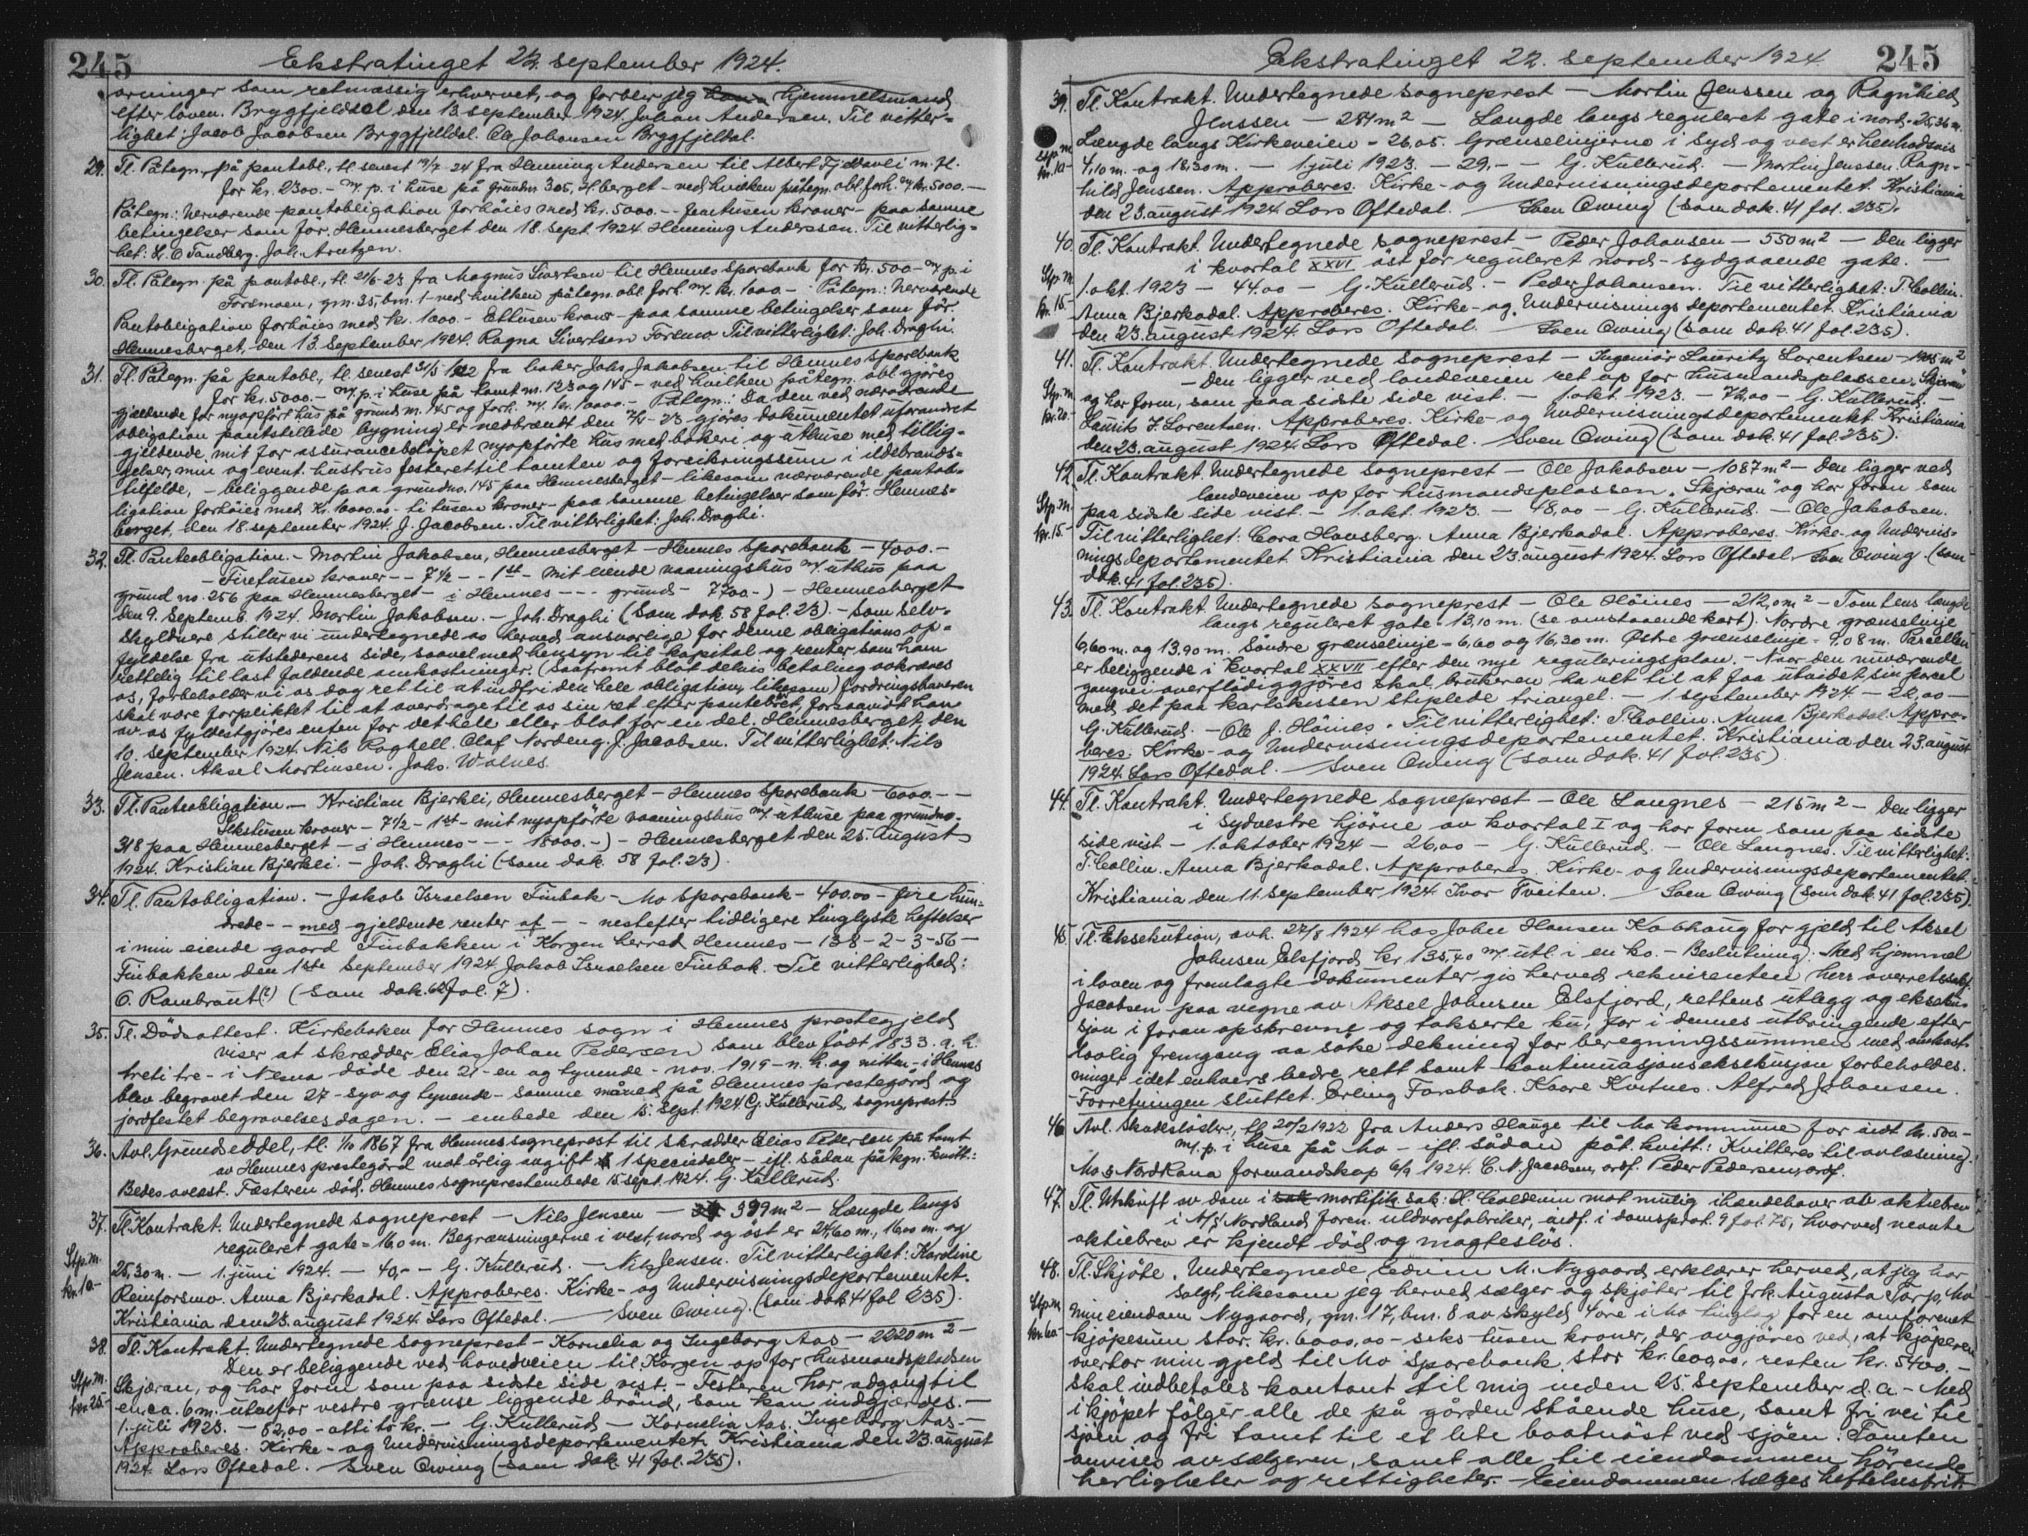 245
Ekstratinget 22. september 1924.
ordninger som retmæssig erhvervet, og forblir jeg hjemmelsmand
efter loven. Bryggfjeldal den 13. september 1924. Johan Andersen. Til vitter-
lighet: Jacob Jacobsen Bryggfjelldal. Ole Johansen Bryggfjeldal.
29. Tl. Påtegn. på pantobl., tl. senest 24 fra Henning Andersen til Albert m. fl.
for kr. 2300.- m/ p. i huse på grundn. 305, H.berget - ved hvilken påtegn. obl. forh. m/ kr. 5000.-
Påtegn.: Nærværende pantobligation forhöies med kr. 5000.- - femtusen kroner - paa samme
betingelser som för. Hemnesberget den 18. sept. 1924. Henning Anderssen. Til vitterlig-
het: H. O. Sandberg. Joh. Arntzen.
30. Tl. Påtegn. på pantobl., tl. 21/6-23 fra Magnus Sivertsen til Hemnes Sparebank for kr. 500- m/ p. i
Foremoen, gm. 35, bm. 1 - ved hvilken påtegn. obl. forh. m/ kr. 1000.- Påtegn.: Nærværende
Pantobligation forhöies med kr. 1000.- Ettusen kroner - paa samme betingelser som för.
Hemnesberget, den 13. September 1924. Ragna Sivertsen Foremo. Til vitterlighet: Joh. Draghi.
31. Tl. Påtegn. på pantobl., tl. senest 31/5 1922 fra baker Johs. Jakobsen til Hemnes Sparebank
for kr. 5000.- m/ p. i huse på tomt nr. 123 og 145 - ved hvilken påtegn. obl. gjöres
gjeldende for nyopfört hus på grundn. 145 og forh. m/ kr. 10000.- Påtegn.: Da den ved nærværende
obligation pantstillede bygning er nedbrændt den 23 gjöres dokumentet uforandret
gjeldende i mit for assurancebelöpet nyopförte hus med bakeri og uthuse med tillig-
gelser, min og event. hustrus festeret til tomten og forsikringssum i ildebrands-
tilfelde, - beliggende paa grundno. 145 paa Hemnesberget - likesom nærværende pantob-
ligation forhöies med kr. 10000.00 - ti tusen kroner - paa samme betingelser som för. Hemnes-
berget, den 18. september 1924. J. Jacobsen. Til vitterlighet: Joh. Draghi.
32. Tl. Panteobligation. - Martin Jakobsen, Hemnesberget - Hemnes Sparebank - 4000.-
- Firetusen kroner - - 7 1/2 - - 1st - mit eiende vaaningshus m/ uthus paa
grund no. 256 paa Hemnesberget - i Hemnes - - - grund - 7700.-) - Hemnesberget
den 9. Septemb. 1924. Martin Jakobsen. - Joh. Draghi (som dok. 58 fol. 23). - Som selv-
skyldnere stiller vi undertegnede os herved ansvarlige for denne obligations op-
fyldelse fra utstederens side, saavel med hensyn til kapital og renter som ham
rettelig til last faldende omkostninger. (Saafremt blot delvis betaling avkræves
os, forbeholder vi os dog ret til at indfri den hele obligation, likesom) fordringshaveren
skal være forpliktet til at overdrage til os sin ret efter pantebrevet, forsaavidt han
av os fyldestgjöres enten for det hele eller blot for en del. Hemnesberget, den
10. september 1924. Nils Roghell. Olaf Nordeng. J. Jacobsen. Til vitterlighet: Nils
Jensen. Aksel Martinsen. Johs. Walnes.
33. Tl. Panteobligation. - Kristian Bjerkli, Hemnesberget - Hemnes Sparebank - 6000.- -
Sekstusen kroner - 7 1/2 - 1st - mit nyopförte vaaningshus m/ uthuse paa grundno.
318 paa Hemnesberget - i Hemnes - - - 18000.-) - Hemnesberget den 25. August
1924. Kristian Bjerkli. - Joh. Draghi (som dok. 58 fol. 23).
34. Tl. Pantobligation. - Jakob Israelsen Finbak - Mo Sparebank - 400.00 - fire hun-
drede - - med gjeldende renter af - - nestefter tidligere tinglyste heftelser
i min eiende gaard Finbakken i Korgen herred Hemnes - 138-2-3-56 -
Finbakken den 1ste September 1924. Jakob Israelsen Finbak. Til vitterlighed:
O. Rambraut(?) (som dok. 62 fol. 7).
35. Tl. Dödsattest. Kirkeboken for Hemnes sogn i Hemnes prestegjeld
viser at skrædder Elias Johan Pedersen som blev født 1833. a. h.
treti tre - i Nesna döde den 21 - en og tyvende - nov. 1919 - n. h. og nitten - i Hemnes
blev begravet den 27 - syv og tyvende - samme måned på Hemnes prestegård og
jordfestet begravelsesdagen. - embede den 15. sept. 1924. G. Kullerud, sogneprest.
36. Avl. Grundseddel, tl. 1/10 1867 fra Hemnes sogneprest til skrædder Elias Pedersen på tomt
av Hemnes prestegård mot årlig avgift 1 speciedaler - ifl. sådan påtegn. kvitt.:
Bedes avlæst. Fæsteren död. Hemnes sogneprestembede 15. sept. 1924. G. Kullerud.
37. Tl. Kontrakt. Undertegnede sogneprest - Nils Jensen - 399 m² - Længde langs
reguleret gate = 16,0 m. Begrænsningerne i vest, nord og öst er 24,60 m., 16,00 m. og
Stp. m. kr. 10.-
25,30 m. - 1. juni 1924. - 40,- - G. Kullerud. - Nils Jensen. Til vitterlighet: Karoline
Remforsmo. Anna Bjerkadal. Approberes. Kirke- og Undervisningsdepartementet.
Kristiania den 23. august 1924. Lars Oftedal. - Sven Owing (som dok. 41 fol. 235).
38. Tl. Kontrakt. Undertegnede sogneprest - Kornelia og Ingeborg Aas - 2220 m² -
Den er beliggende ved hovedveien til Korgen op for husmandspladsen
Stp. m. kr. 25.-
Skjæran, og har form som paa sidste side vist. - Festeren har adgang til
en ca. 6 m. utenfor vestre grænse liggende brönd, som kan indgjærdes. -
1. juli 1923. - 82,00 - otti to kr. - G. Kullerud - Kornelia Aas. Ingeborg Aas. -
Approberes. Kirke- og Undervisningsdepartementet. Kristiania den 23. august
1924. Lars Oftedal. - Sven Owing (som dok. 41 fol. 235).
245
Ekstratinget 22. september 1924
39. Tl. Kontrakt. Undertegnede sogneprest - Martin Jenssen og Ragnhild
Jenssen - 281 m² - Længde langs reguleret gate i nord - 25,36 m.
Stp. m. kr. 10.-
Længde langs Kirkeveien - 26,05. Grænselinjerne i syd og vest er henholdsvis
4,10 m. og 18,30 m. - 1 juli 1923. - 29,- - G. Kullerud. - Martin Jenssen. Ragn-
hild Jenssen. Approberes. Kirke- og Undervisningsdepartementet. Kristiania
den 23. august 1924. Lars Oftedal. - Sven Owing (som dok. 41 fol. 235).
40. Tl. Kontrakt. Undertegnede sogneprest - Peder Johansen - 550 m² - Den ligger
i kvartal XXVI öst for reguleret nord-sydgaaende gate. -
Stp. m. kr. 15.-
1. okt. 1923 - 44.00 - G. Kullerud. - Peder Johansen. Til vitterlighet: T. Collin.
Anna Bjerkadal. Approberes. Kirke- og Undervisningsdepartementet. Kristiania
den 23. august 1924. Lars Oftedal. Sven Owing (som dok. 41 fol. 235).
41. Tl. Kontrakt. Undertegnede sogneprest - Ingeniør Lauritz Lorentsen - m²
- Den ligger ved landeveien ret op for husmandsplassen "Skjæran"
Stp. m. kr. 20.-
og har form, som paa sidste side vist. - 1 okt. 1923. - 72,00 - G. Kullerud. -
Laurits J. Lorentsen. Approberes. Kirke- og Undervisningsdepartementet. Kristiania
den 23. august 1924. Lars Oftedal. - Sven Owing (som dok. 41 fol. 235).
42. Tl. Kontrakt. Undertegnede sogneprest - Ole Jakobsen - 1087 m² - Den ligger ved
landeveien op for husmandsplassen "Skjæran" og har form som
Stp. m. kr. 15.-
paa sidste side vist - 1. okt. 1923 - 48,00 - G. Kullerud. - Ole Jakobsen.
Til vitterlighet: Cora Hansberg. Anna Bjerkadal. Approberes. Kirke- og Undervis-
ningsdepartementet. Kristiania den 23. august 1924. Lars Oftedal. Sven Owing (som
dok. 41 fol. 235).
43. Tl. Kontrakt. Undertegnede sogneprest - Ole Höines - 212,0 m² - Tomtens længde
langs reguleret gate - 13,10 m. (se omstaaende kart). Nordre grænselinje
6,60 m. og 13,90 m. Söndre grænselinje - 6,60 og 16,30 m. Østre grænselinje - 9,08 m. Parcellen
er beliggende i kvartal XXVII efter den nye reguleringsplan. - Naar den nuværende
gangvei overflödiggjöres skal brukeren ha ret til at faa utvidet sin parsel
med det paa kartskissen steplede triangel. - 1 september 1924 - 22,00 -
G. Kullerud. - Ole J. Höines. Til vitterlighet: T. Collin. Anna Bjerkadal. Appro-
beres. Kirke- og Undervisningsdepartementet. Kristiania den 23. august
1924. Lars Oftedal. - Sven Owing (som dok. 41 fol. 235).
44. Tl. Kontrakt. Undertegnede sogneprest - Ole Langnes - 215 m² - Den ligger
i sydvestre hjörne av kvartal I og har form som paa sidste
side vist - 1. oktober 1924 - 26,00 - G. Kullerud. - Ole Langnes. Til vitterlighet:
T. Collin. Anna Bjerkadal. Approberes. Kirke- og Undervisningsdepartementet.
Kristiania den 11. september 1924. Ivar Tveiten. - Sven Owing (som dok. 41 fol. 235).
45. Tl. Eksekution, avh. 27/8 1924 hos John Hansen Kobhaug for gjeld til Aksel
Johnsen Elsfjord kr. 135,40 m/ utl. i en ko. - Beslutning: Med hjemmel
i loven og fremlagte dokumenter gis herved rekvirenten herr overretssakf.
Jacobsen paa vegne av Aksel Johnsen Elsfjord, rettens utlegg og ekseku-
sjon i foran opskrevne og takserte ku, for i dennes utbringende efter
lovlig fremgang aa söke dekning for beregningssummen med omkost-
ninger idet enhvers bedre rett samt kontinuasjonseksekusjon forbeholdes.
Forretningen sluttet. Erling Forsbak. Kaare Kvitnes. Alfred Johansen.
46. Avl. Skadeslösbr., tl. 20/2 1922 fra Anders Hauge til Mo kommune for inntil kr. 500.-
m/ p. i huse på Mo - ifl. sådan påt. kvitt.: Kvitteres til avlæsning.
Mo i Nordrana formandskap 6/9 1924. C. N. Jacobsen, ordf. Peder Pedersen, ordf.
47. Tl. Utskrift av dom i mortifik. sak: H. Coldevin mot mulig ihændehaver av aktiebrev
i A/S Nordland Foren. uldvarefabriker, avsf. i domsprot. 9 fol. 75, hvorved nevnte
aktiebrev er kjendt död og magteslös.
48. Tl. Skjöte. Undertegnede, Edvin M. Nygaard, erklærer herved, at jeg har
solgt, likesom jeg herved sælger og skjöter til frk. Augusta Torp, Mo
Stp. m. kr. 60.-
min eiendom Nygaard, gm. 17, bm. 8 av skyld 4 öre i Mo tinglag for en omforenet
kjöpesum stor kr. 6000,00 - seks tusen kroner, der avgjöres ved, at kjöperen
overtar min gjeld til Mo Sparebank, stor kr. 600,00, resten kr. 5400.-
skal indbetales kontant til mig inden 25. september d.a. - Med
i kjöpet fölger alle de på gården stående huse, samt fri vei til
sjöen og fri tomt til et lite baatnöst ved sjöen. Tomten
anvises av sælgeren, samt alle til eiendommen hörende
herligheter og rettigheter. - Eiendommen sælges heftelsesfrit.